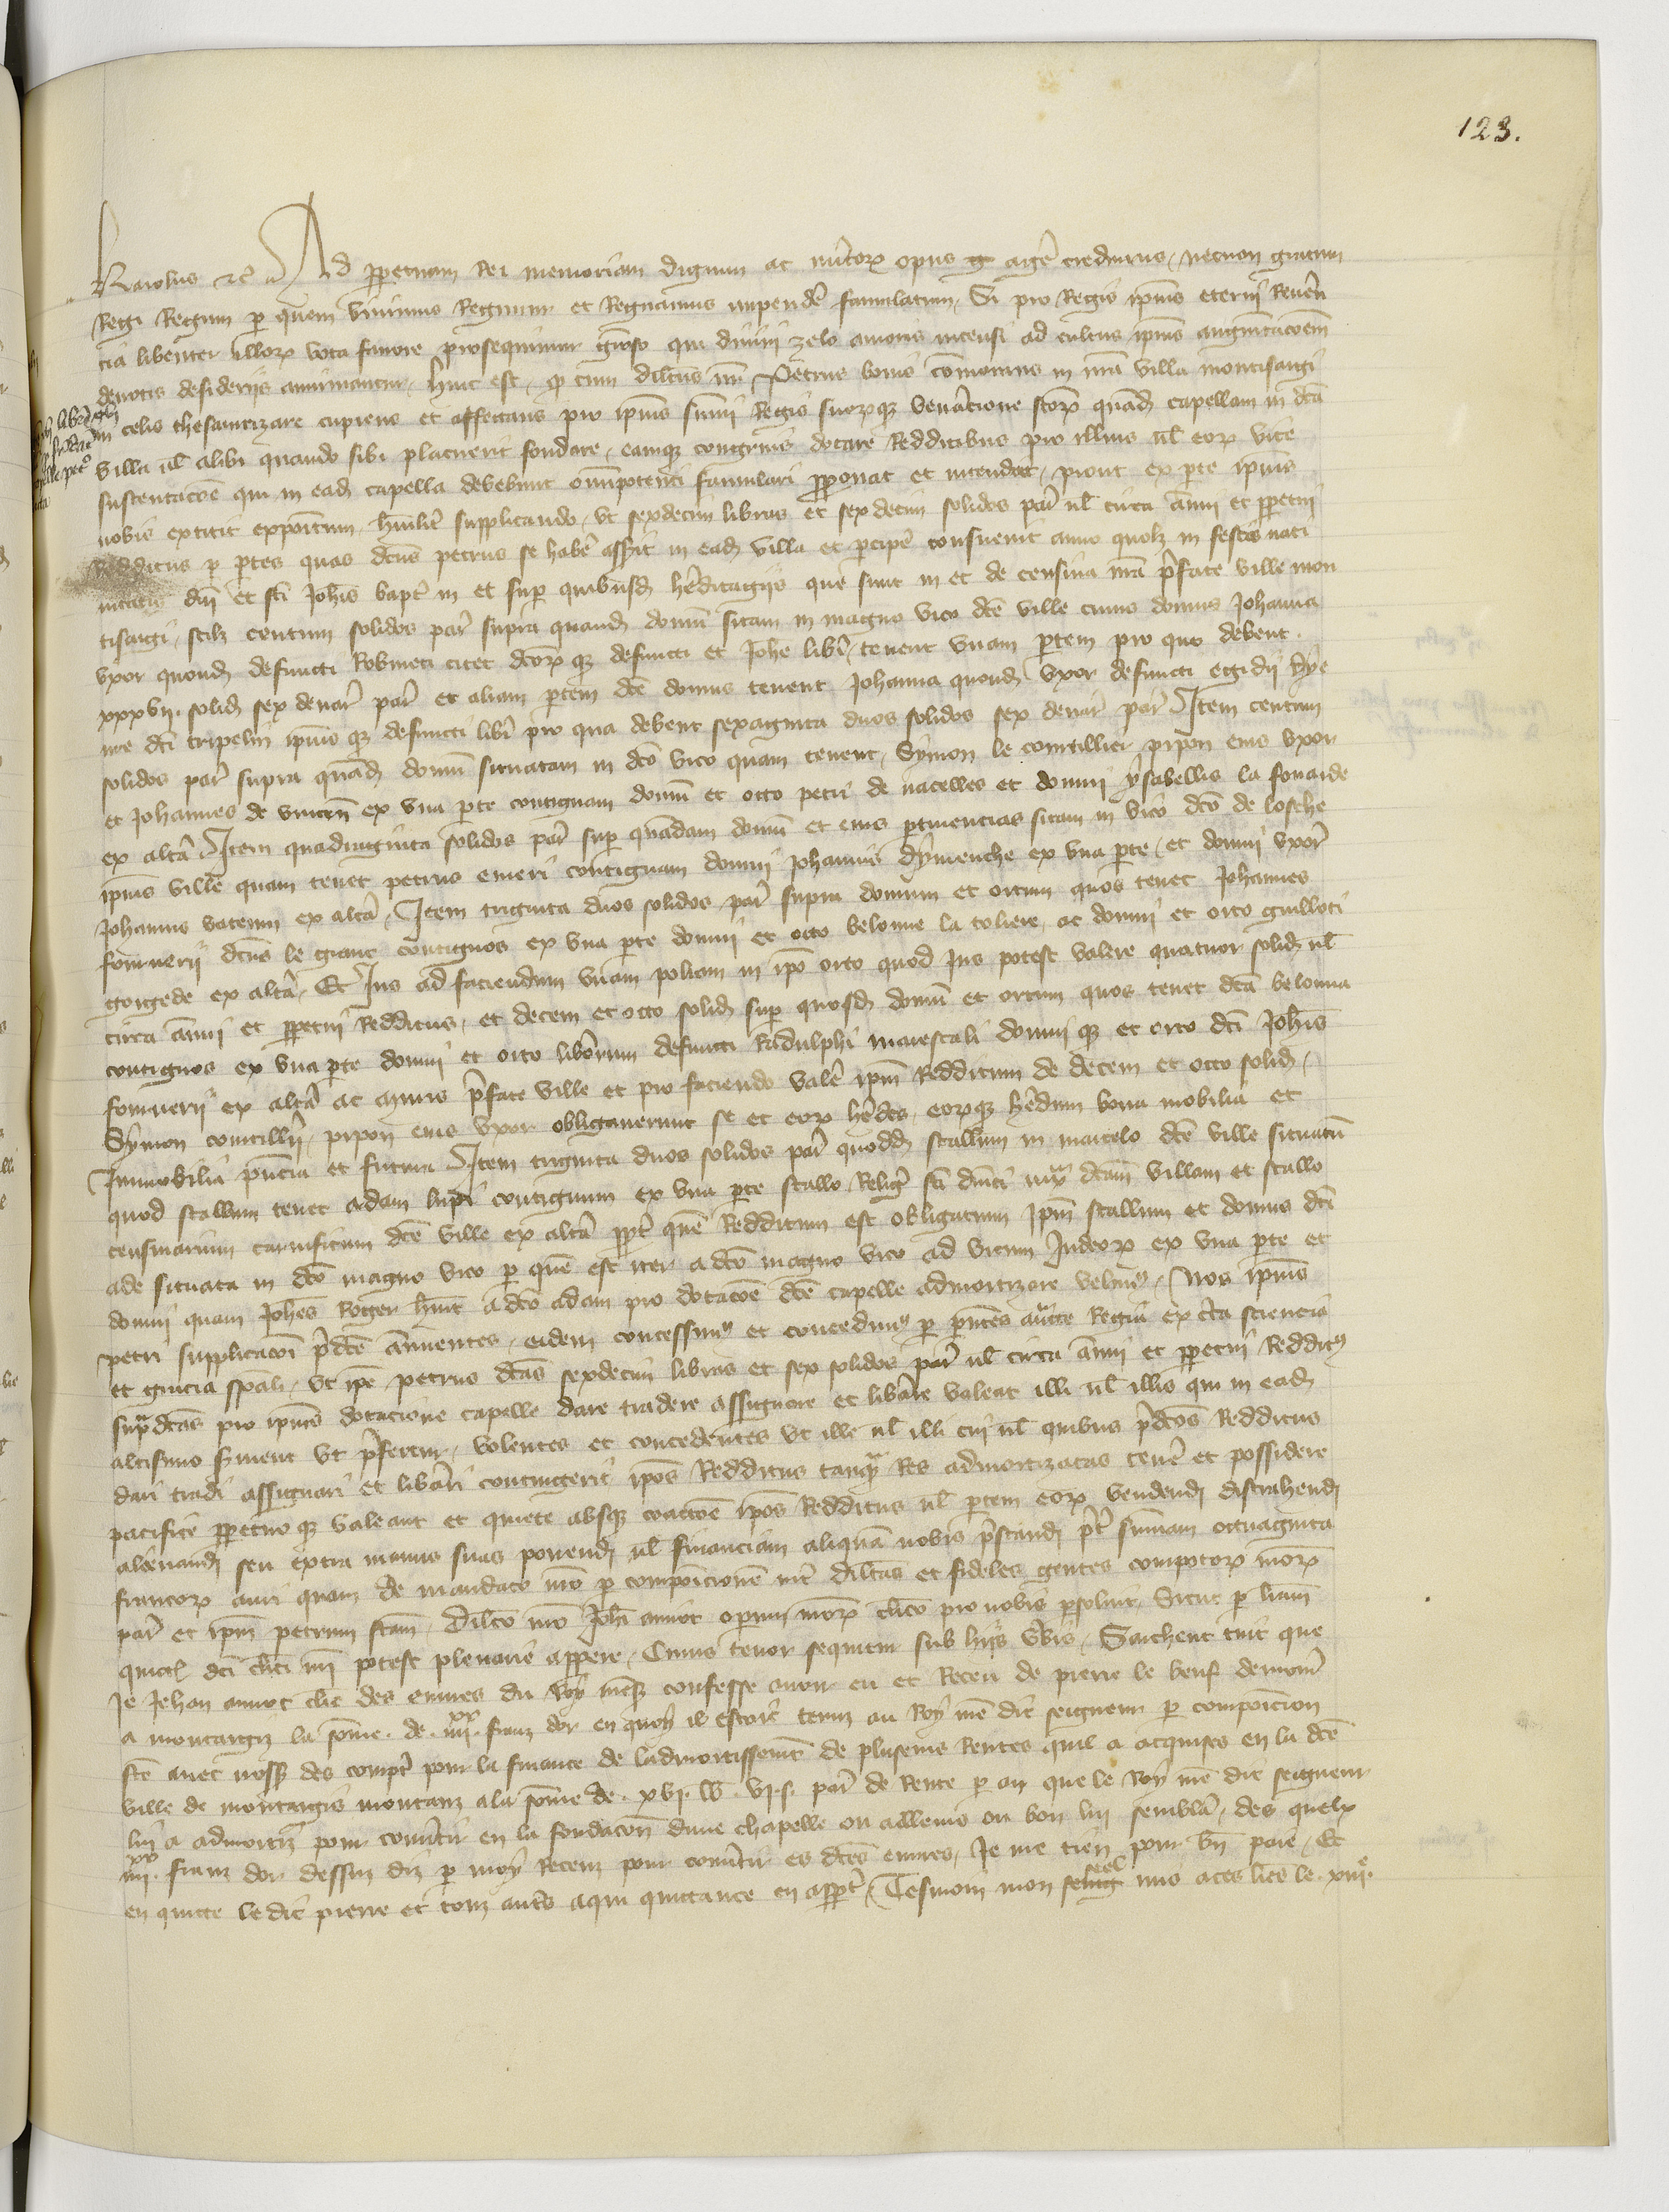 123.
Karolus etc. Ad ppetuam Rei memoriam dignum ac mitorꝝ opus agẽ credimus, necnon gratum
Regi Regum p quem viuimus Regimur et Regnamus impendẽ famulatum, Si pro Regis ipius eterni Reuen
cia libenter illorꝝ vota fauore prosequimur gr̃oso qui diuini zelo amoris incensi ad cultus ipius augm̃tacõem
deuotis desiderijs animantur, hinc est, q̃ cum dilcus nr̃ Petrus bonis commorans in nr̃a villa montisargi
in celis thesaurizare cupiens et affectans pro ipius sum̃i Regis suorꝝq3 venacione scorꝝ quãd capellam in dcã
villa ul̃ alibi quando sibi placuerit fondare, eamq3 congruis dotare Redditibus pro illius ul̃ eorꝝ vite
sustentacõe qui in ead capella debebunt om̃ipotenti famulari p̃ponat et intendat, prout ex pte ipius
nobis extitit expoitum, hũilit̃ supplicando, vt sexdecim libras et sex decim solidos par̃ ul̃ circa ãnui et ppetui
Redditus p ptes quas dcus petrus se habẽ assit in ead villa et pcipẽ consueuit anno quol3 in festis nati
uitatis dni et sci Johis bapt̃ in et sup quibusd heditagijs que sunt in et de censiua nr̃a p̃fate ville mon
tisargi, scil3 centum solidos par̃ supra quand domũ sitam in magno vico dcẽ ville cuius domus Johanna
vxor quond defuncti Robineti citet dcorꝝ q3 defuncti et Johe libĩ, tenent vnam ptem pro quo debent
xxxvii. solid sex denar̃ par̃ et aliam ptem dcẽ domus tenent Johanna quond vxor defuncti egidij dye
me dci tripelin ipius q3 defuncti libĩ pro qua debent sexaginta duos solidos sex denar̃ par̃ Item centum
solidos par̃ supra quãd domũ situatam in dcõ vico quam tenent, Symon le coutillier pipon eius vxor
et Johannes de vincẽn ex vna pte contiguam domũ et orto petri de nacelles et domui ysabellis la fouarde
ex altã Item quadraginta solidos par̃ sup quãdam domũ et eius ptinencias sitam in vico dcõ de losche
ipius ville quam tenet petrus emeri contiguam domui Johannis dymenche ex vna pte, et domui vxor̃
Johannis vatenin ex altã, Item triginta duos solidos par̃ supra domum et ortum quos tenet Johannes
fournerij dcus le grant contiguos ex vna pte domui et orto belonne la toliere, ac domui et orto guilloti
gongede ex altã, Et Jus ad faciendum vnam poliam in ipo orto quod Jus potest valere quatuor solid ul̃
circa ãnui et ppetui Redditus, et decem et octo solid sup quosd domũ et ortum quos tenet dcã belonna
contiguos ex vna pte domui et orto liberum defuncti Radulphi marescali domui q3 et orto dci Johis
fournerij ex altã ac muris p̃fate ville et pro faciendo valẽ ipm Redditum de decem et octo solid,
Symon coutillij, pipon eius vxor obligauerunt se et eorꝝ hedes, eorꝝq3 hedum bona mobilia et
Inmobilia p̃ncia et futura Item triginta duos solidos par̃ quodd stallum in macelo dcẽ ville situatũ
quod stallum tenet adam lupi contiguum ex vna pte stallo Religͥ sci dnici iuxᵃ dcam villam et stallo
censiuarium carnificum dcẽ ville ex altã ppt̃ quẽ Redditum est obligatum Ipm stallum et domus dci
ade situata in dcõ magno vico p quẽ est iter a dcõ magno vico ad vicum Judeorꝝ ex vna pte et
domui quam Johes Roger hũit a dcõ adam pro dotacõe dcẽ capelle admortizare velimꝰ, Nos ipius
petri supplicacõi p̃dcẽ annuentes, eidem concessimꝰ et concedimꝰ p p̃ntes aucte Regia ex cta sciencia
et gracia sp̃ali, vt ipe petrus dcas sexdecim libras et sex solidos par̃ ul̃ circa ãnui et ppetui Redditꝰ
supᵃdcãs pro ipius dotacione capelle dare tradere assignare et libare valeat illi ul̃ illis qui in ead
altisimo seruient vt p̃fertur, volentes et concedentes vt ille ul̃ illi cui ul̃ quibus p̃dcos Redditus
dari tradi assignari et libari contingerit ipos Redditus tanqᵃ Res admortizatas tenẽ et possidere
pacifice ppetuo q3 valeant et quiete absq3 coactõe ipos Redditus ul̃ ptem eorꝝ vendend distrahend
alienand seu extra manus suas ponend ul̃ financiam aliquã nobis p̃stand p̃t sum̃am octuaginta
francorꝝ auri quam de mandato nr̃o p compoicionẽ int̃ dilcas et fideles gentes compotorꝝ nr̃orꝝ
par̃ et ipm petrum scam, dilcõ nr̃o Johi amiot operum nr̃orꝝ clico pro nobis psoluit, Sicut p liam
quictʔ dci clici nr̃i potest plenarie apparere, Cuius tenor sequitur sub hijs verbis, Sachent tuit que
Je Jehan amiot clic des euures du Roy nrẽ sire confesse auoir eu et Receu de pierre le beuf demor̃
a montargiz la som̃e. de. iiii ˣˣ. franz dor en quoy il estoit tenuz au Roy mẽ dit seigneur p compoicion
fce auec nossʳ des compt̃ pour la finance de ladmortissemt de plusieurs Rentes quil a acquises en la dcẽ
ville de montargis montanz a la som̃e de. xvi. lb. vi. s. par̃ de Rente p an que le Roy mẽ dit seigneur
luy a admortiz pour conũtir en la fondacõn dune chapelle ou ailleurs ou bon luy semblã, des quelx
iiii ˣˣ franz dor dessuz diz p moy Receuz pour conũtir es dces euures, Je me tien pour bñ paie, Et
en quitte le dit pierre et touz autrs a qui quittance en appt̃, Tesmoin mon seel mis a ces lies le. xiiiᵉ.